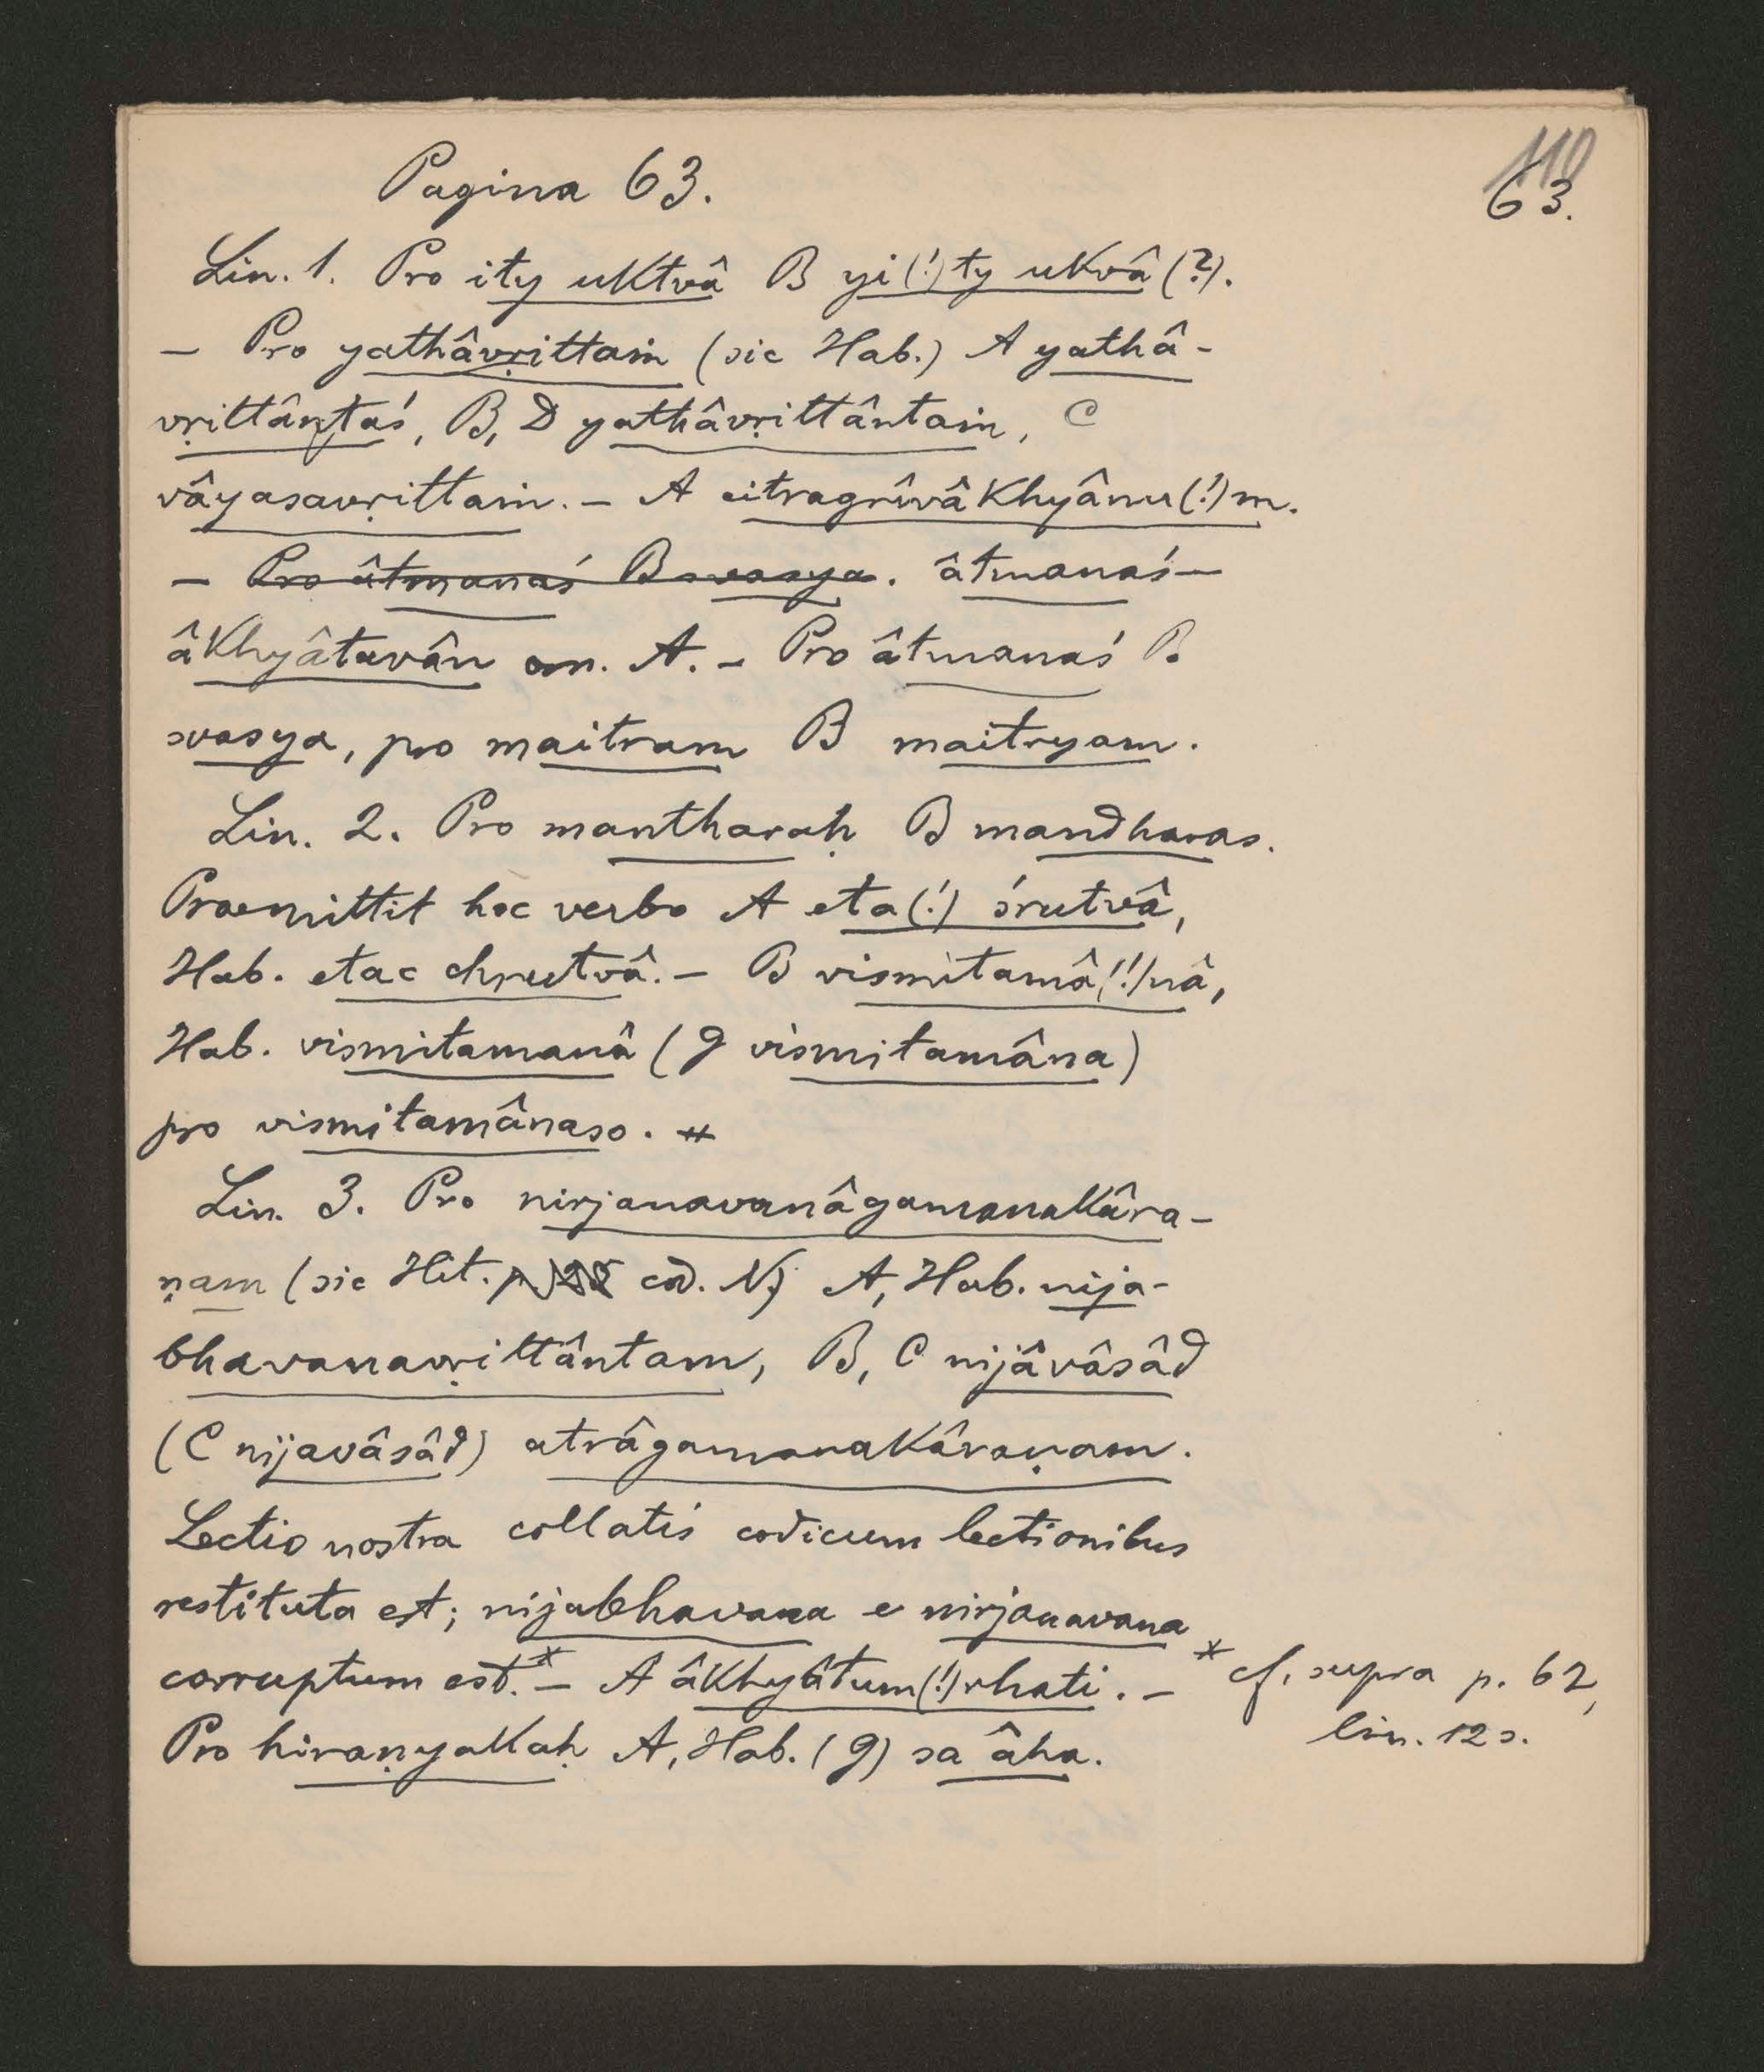 Pagina 63.
110
63.
Lin. 1. Pro ity uktvâ B yi(!)ty ukvâ (?).
– Pro yathâvṛittaṁ (sic Hab.) A yathâ-
vṛittântaś, B, D yathâvṛittântaṁ, C
vâyasavṛittaṁ. – A citragrîvâkhyânu(!)m.
– Pro âtmanaś B svasya. âtmanaś –
âkhyâtavân om. A. – Pro âtmanaś B
svasya, pro maitram B maitryam.
Lin. 2. Pro mantharaḥ B mandharas.
Praemittit hoc verbo A eta(!) śrutvâ,
Hab. etac chrutvâ. – B vismitamâ(!)nâ,
Hab. vismitamanâ (g vismitamâna)
pro vismitamânaso. #
Lin. 3. Pro nirjanavanâgamanakâra-
ṇam (sic Hit. cod. N) A, Hab. nija-
bhavanavṛittântam, B, C nijâvâsâd
(C nijavâsâd) atrâgamanakâraṇam.
Lectio nostra collatis codicum lectionibus
restituta est; nijabhavana e nirjanavana
corruptum est.* – A âkhyâtum(!)rhati. –
Pro hiraṇyakaḥ A, Hab. (g) sa âha.
* cf. supra p. 62,
lin. 12 s.